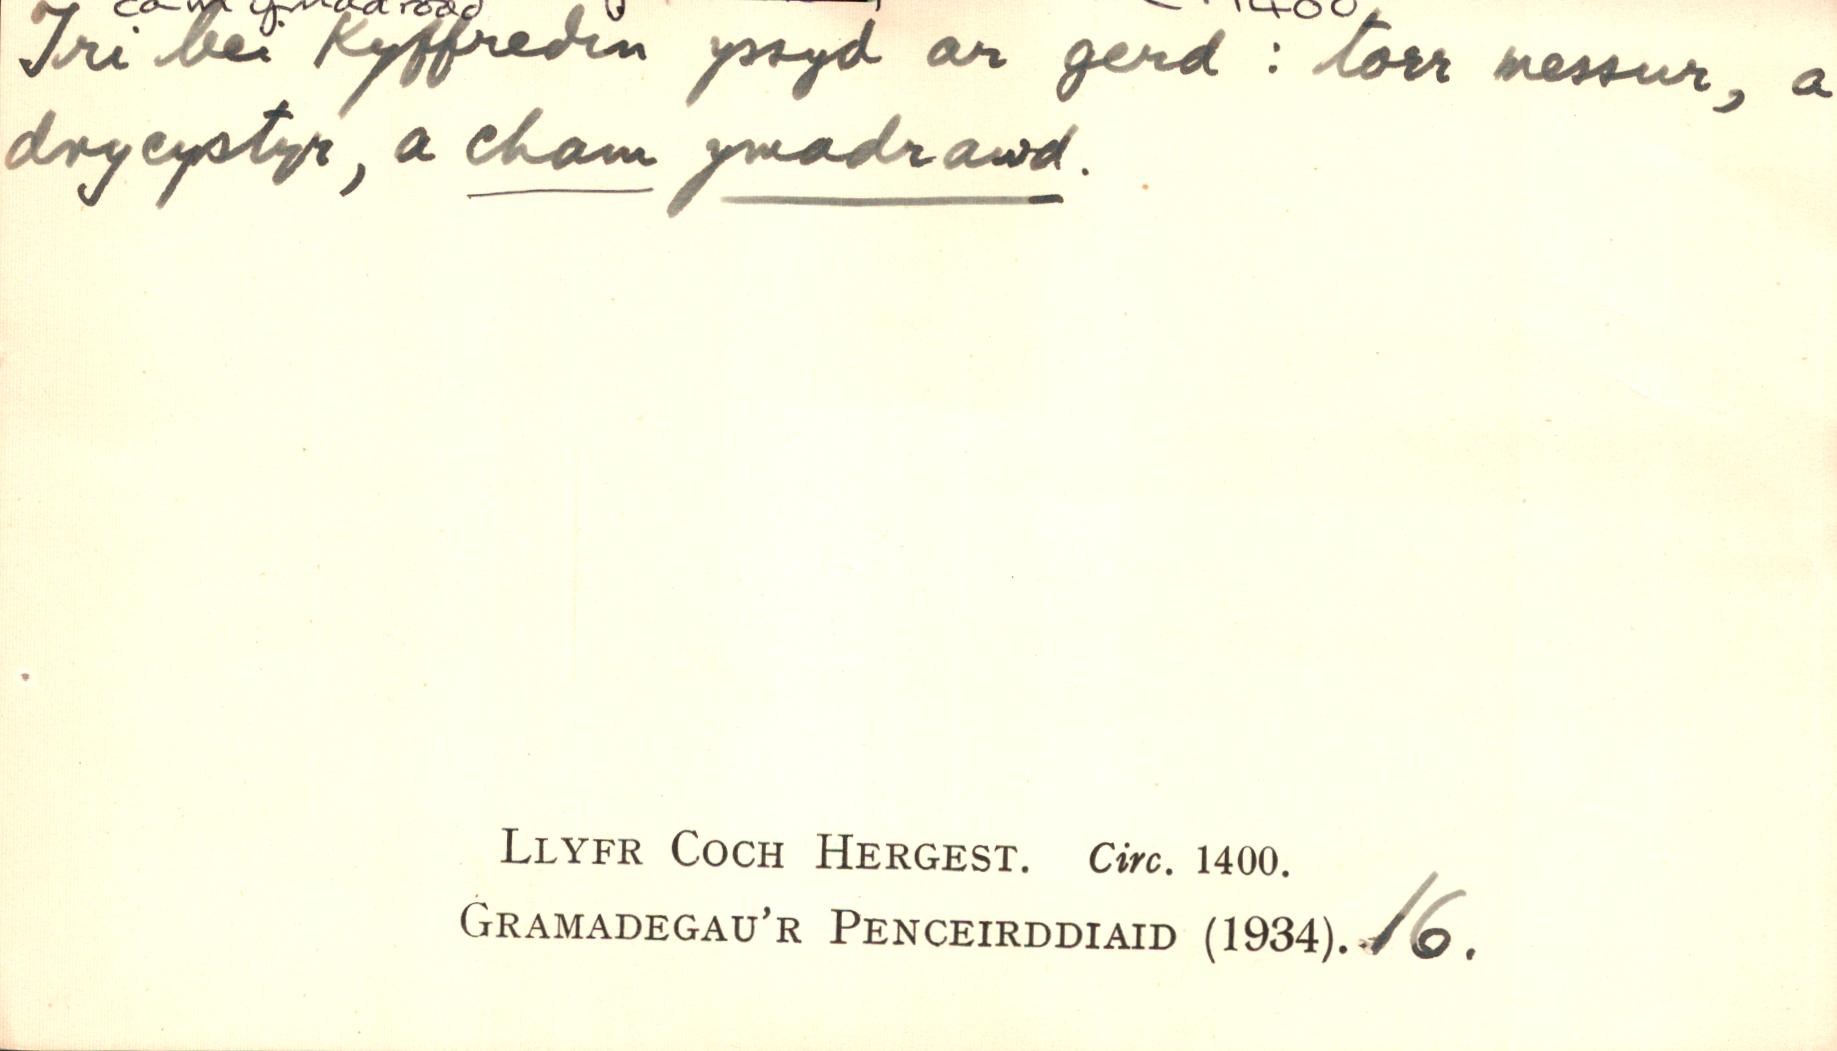 cam ymadrodd c 1400
Tri bei kyffredin yssyd ar gerd : torr messur, a
drycystyr, a cham ymadrawd.
LLYFR COCH HERGEST. Circ. 1400.
GRAMADEGAU'R PENCEIRDDIAID (1934). 16.